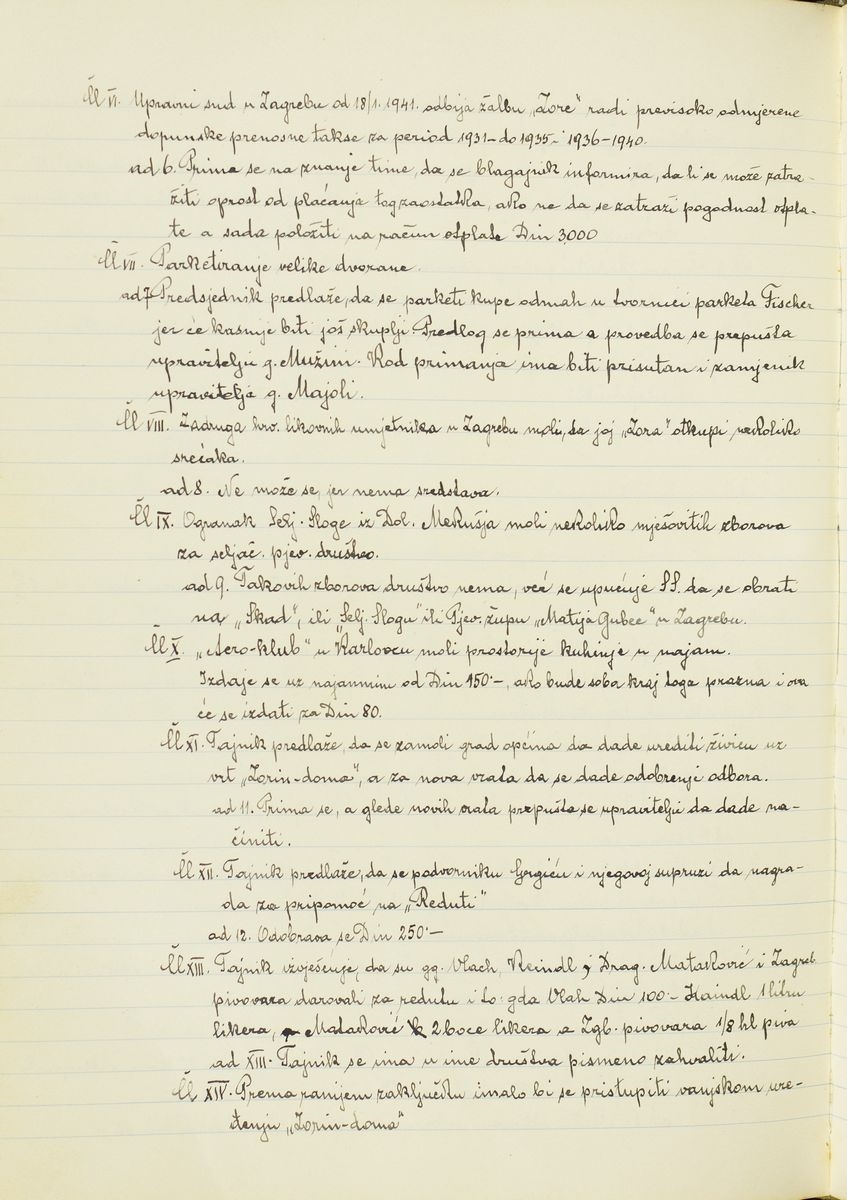 Čl VI. Upravni sud u Zagrebu od 18/1. 1941. odbija žalbu „Zore“ radi previsoko odmjerene
dopunske prenosne takse za period 1931–do 1935– i 1936–1940.
ad 6. Prima se na znanje time, da se blagajnik informira, da li se može zatra-
žiti oprost od plaćanja tog zaostatka, ako ne da se zatraži pogodnost otpla-
te a sada položiti na račun otplate Din 3000
Čl VII. Parketiranje velike dvorane.
ad 7 Predsjednik predlaže, da se parketi kupe odmah u tvornici parketa Fischer
jer će kasnije biti još skuplji. Predlog se prima a provedba se prepušta
upravitelju g. Mužini. Kod primanja ima biti prisutan i zamjenik
upravitelja g. Majoli.
Čl VIII. Zadruga hrv. likovnih umjetnika u Zagrebu moli, da joj „Zora“ otkupi nekoliko
srećaka.
ad 8. Ne može se, jer nema sredstava.
Čl IX. Ogranak Selj. Sloge iz Dol. Mekušja moli nekoliko mješovitih zborova
za seljač. pjev. društvo.
ad 9. Takovih zborova društvo nema, već se upućuje SS. da se obrati
na „Sklad“, ili „Selj. Slogu“ ili Pjev. župu „Matija Gubec“ u Zagrebu.
Čl X. „Aero-klub“ u Karlovcu moli prostorije kuhinje u najam.
Izdaje se uz najamninu od Din 150·–, ako bude soba kraj toga prazna i ova
će se izdati za Din 80.
Čl XI. Tajnik predlaže, da se zamoli grad općina da dade urediti živicu uz
vrt „Zorin-doma“, a za nova vrata da se dade odobrenje odbora.
ad 11. Prima se, a glede novih vrata prepušta se upravitelju da dade na-
činiti.
Čl XII. Tajnik predlaže, da se podvorniku Grgiću i njegovoj supruzi da nagra-
da za pripomoć na „Reduti“
ad 12. Odobrava se Din 250·–
Čl XIII. Tajnik izvješćuje, da su gg. Vlach, Reindl, Drag. Mataković i Zagreb.
pivovara darovali za redutu i to: gda Vlah Din 100·– Kaindl 1 litru
likera, Mataković 2 boce likera a Zgb. pivovara 1/8 hl piva
ad XIII. Tajnik se ima u ime društva pismeno zahvaliti.
Čl XIV. Prema ranijem zaključku imalo bi se pristupiti vanjskom ure-
đenju „Zorin-doma“